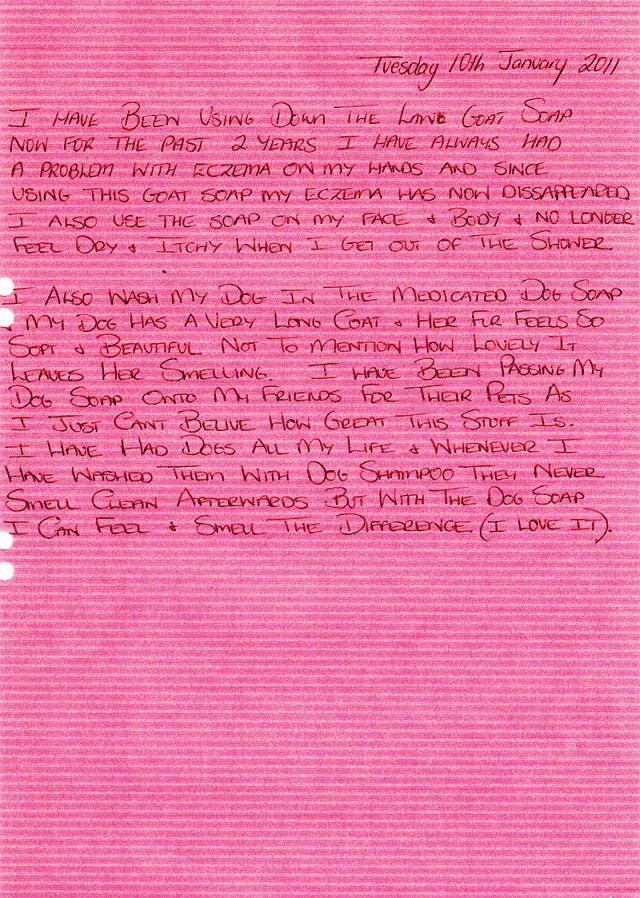 Tuesday 10th January 2011
I HAVE BEEN USING DOWN THE LANE GOAT SOAP
NOW FOR THE PAST 2 YEARS I HAVE ALWAYS HAD
A PROBLEM WITH ECZEMA ON MY HANDS AND SINCE
USING THIS GOAT SOAP MY ECZEMA HAS NOW DISSAPEARED
I ALSO USE THE SOAP ON MY FACE & BODY & NO LONGER
FEEL DRY & ITCHY WHEN I GET OUT OF THE SHOWER.
I ALSO WASH MY DOG IN THE MEDICATED DOG SOAP
MY DOG HAS A VERY LONG COAT & HER FUR FEELS SO
SOFT & BEAUTIFUL NOT TO MENTION HOW LOVELY IT
LEAVES HER SMELLING. I HAVE BEEN PASSING MY
DOG SOAP ONTO MY FRIENDS FOR THEIR PETS AS
I JUST CANT BELIVE HOW GREAT THIS STUFF IS.
I HAVE HAD DOGS ALL MY LIFE & WHENEVER I
HAVE WASHED THEM WITH DOG SHAMPOO THEY NEVER
SMELL CLEAN AFTERWARDS BUT WITH THE DOG SOAP
I CAN FEEL & SMELL THE DIFFERENCE. (I LOVE IT).